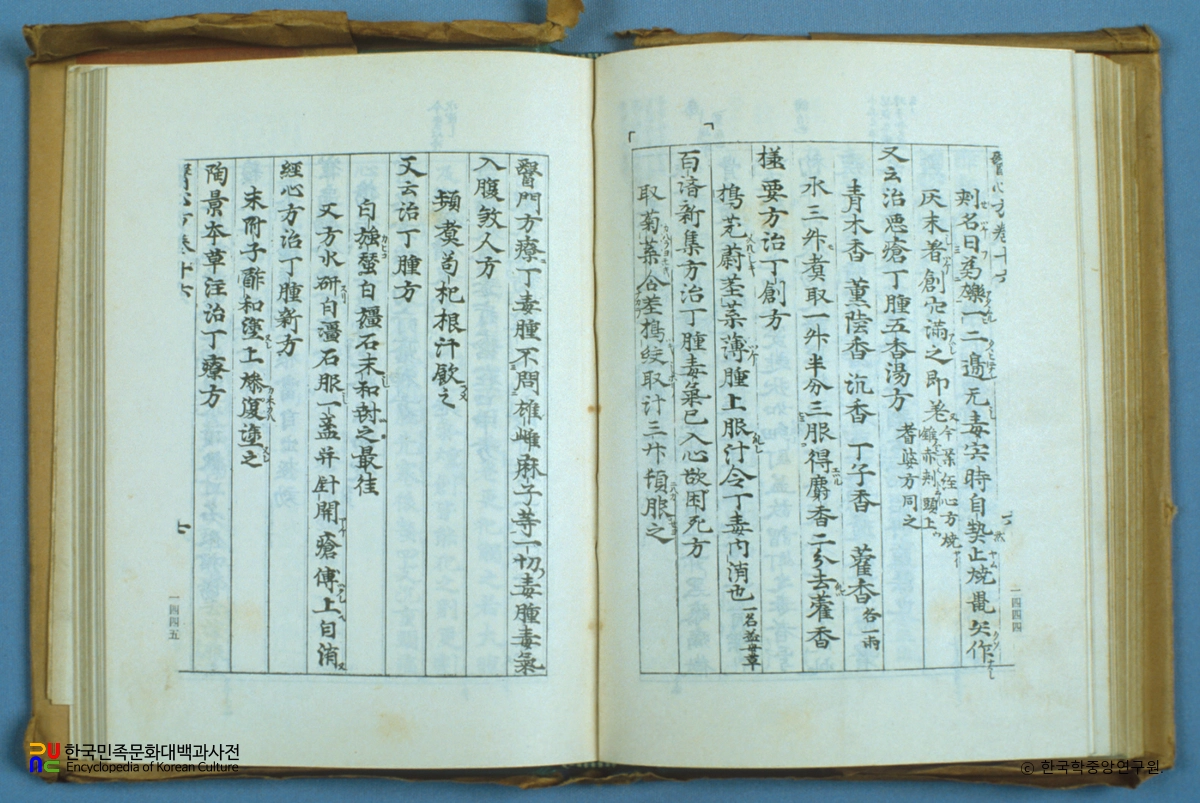 醫心方卷十六
刺名曰爲鑠一二邊无毒字時自契止燒黽矢作
灰末着創宍滿之即差
又云治惡瘡丁腫五香湯方 耆婆方同之
青木香 薰陸香 沉香 丁子香 藿香各一兩
水三升煮取一升半分三服得麝香二分去藿香
樣要方治丁創方
搗茺蔚莖菜薄腫上服汁令丁毒內消也一名益母草
百濟新集方治丁腫毒氣已入心欲困死方
取菊葉合莖搗絞取汁三升頓服之
一四四四
醫門方療丁毒腫不問雄雌麻子等一切毒腫毒氣
入腹煞人方
頻煮苟杞根汁飲之
又云治丁腫方
白強蠶白殭石末和封之最佳
又方水研白殭石服一盞并針開瘡傅上自消
經心方治丁腫新方
末附子酢和塗上燥復塗之
陶景本草注治丁療方
醫心方卷十六
七
一四四五
한국민족문화대백과사전
Encyclopedia of Korean Culture
© 한국학중앙연구원.